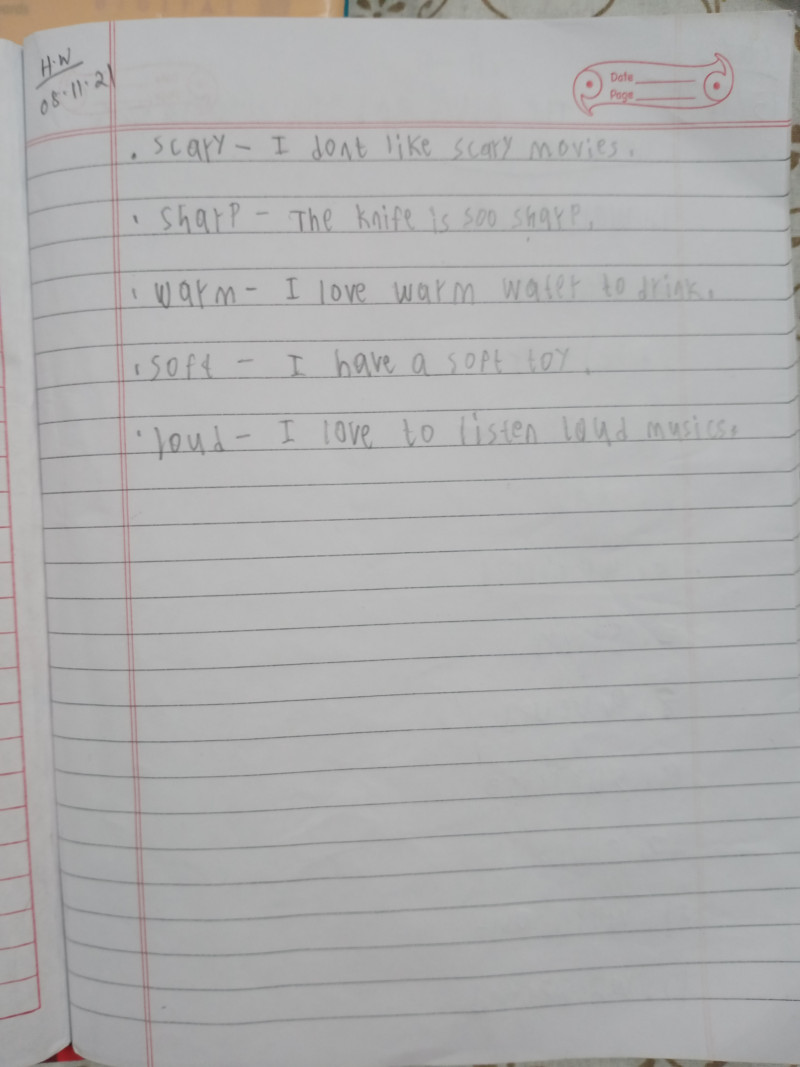 H.W
05.11.21
Date
Page
. scary - I dont like scary movies.
. sharp - The knife is soo sharp.
. warm - I love warm water to drink.
. soft - I have a sopt toy.
. loud - I love to listen loud musics.